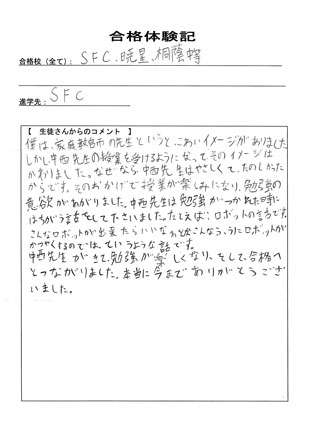 合格体験記
合格校（全て）：SFC、暁星、桐蔭等
SFC
進学先：
【 生徒さんからのコメント 】
僕は、家庭教師の先生というと、こわいイメージがありました。
しかし中西先生の授業を受けるようになって、そのイメージは
かわりました。なぜなら中西先生はやさしくて、たのしかった
からです。そのおかげで授業が楽しみになり、勉強の
意欲があがりました。中西先生は勉強がつかれた時に
はちがう話をして下さいました。たとえば、ロボットの話です。
こんなロボットが出来たらいいなぁとかこんなふうにロボットが
かつやくするのでは、というような話です。
中西先生がきて、勉強が楽しくなり、そして、合格へ
とつながりました。本当に今までありがとうござ
いました。